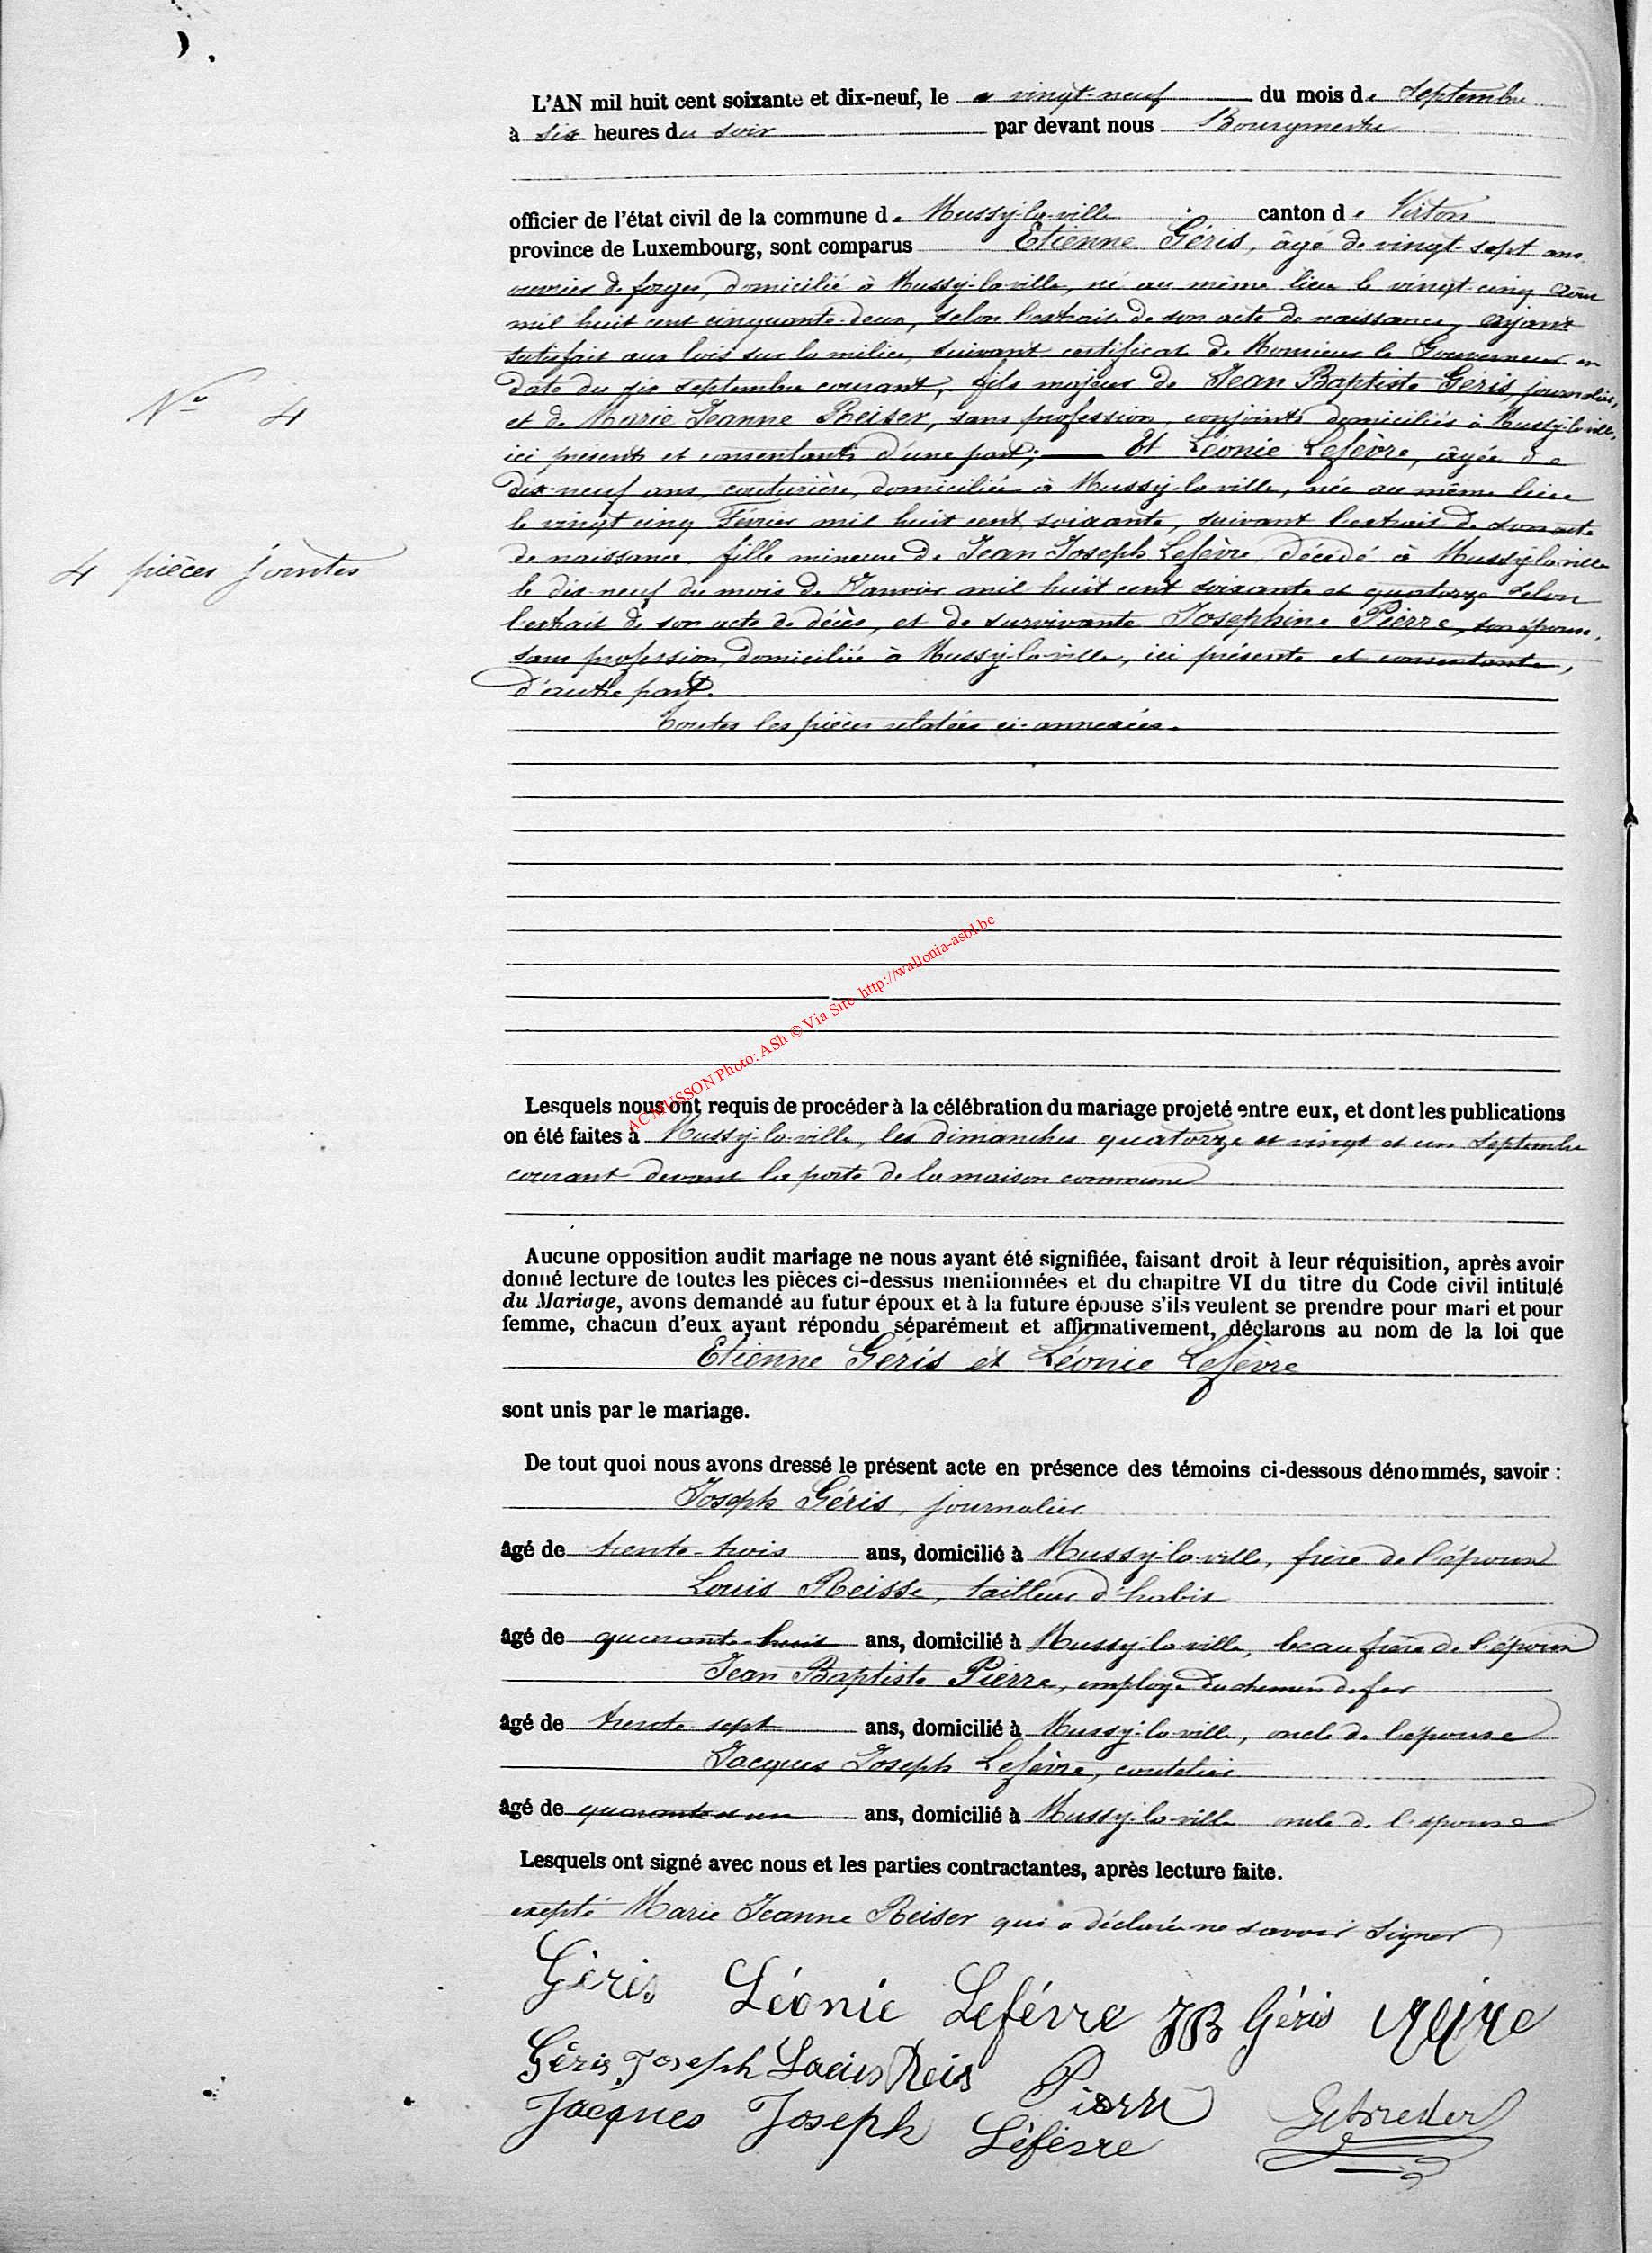 L'AN mil huit cent soixante et dix-neuf, le vingt-neuf du mois de Septembre
à six heures du soir par devant nous Bourgmestre
officier de l'état civil de la commune de Mussy-la-ville canton de Virton
province de Luxembourg, sont comparus Etienne Géris, âgé de vingt-sept ans
ouvrier de forges, domicilié à Mussy-la-ville, né au même lieu le vingt cinq Août
mil huit cent cinquante-deux, selon l'extrait de son acte de naissance, ayant
satisfait aux lois sur la milice, suivant certificat de Monsieur le Gouverneur en
N° 4
date du six septembre courant, fils majeur de Jean Baptiste Géris, journalier,
et de Marie Jeanne Reiser, sans profession, conjoints domiciliés à Mussy-la-ville,
ici présents et consentants d'une part; Et Léonie Lefèvre, âgée de
dix-neuf ans, couturière, domiciliée à Mussy-la-ville, née au même lieu
le vingt cinq Février mil huit cent soixante, suivant l'extrait de son acte
4 pièces jointes
de naissance, fille mineure de Jean Joseph Lefèvre, décédé à Mussy-la-ville
le dix-neuf du mois de Janvier mil huit cent soixante et quatorze selon
l'extrait de son acte de décès, et de survivante Josephine Pierre, son épouse,
sans profession, domiciliée à Mussy-la-ville, ici présente et consentante,
d'autre part.
Toutes les pièces relatées ci-annexées.
AC MUSSON Photo: ASh © Via Site http://wallonia-asbl.be
Lesquels nous ont requis de procéder à la célébration du mariage projeté entre eux, et dont les publications
on été faites à Mussy-la-ville, les dimanches quatorze et vingt et un Septembre
courant devant la porte de la maison commune
Aucune opposition audit mariage ne nous ayant été signifiée, faisant droit à leur réquisition, après avoir
donné lecture de toutes les pièces ci-dessus mentionnées et du chapitre VI du titre du Code civil intitulé
du Mariage, avons demandé au futur époux et à la future épouse s'ils veulent se prendre pour mari et pour
femme, chacun d'eux ayant répondu séparément et affirmativement, déclarons au nom de la loi que
Etienne Géris et Léonie Lefèvre
sont unis par le mariage.
De tout quoi nous avons dressé le présent acte en présence des témoins ci-dessous dénommés, savoir :
Joseph Géris, journalier
âgé de trente-trois ans, domicilié à Mussy-la-ville, frère de l'époux
Louis Reisse, tailleur d'habit
âgé de quarante-huit ans, domicilié à Mussy-la-ville, beau frère de l'époux
Jean Baptiste Pierre, employé du chemin de fer
âgé de trente sept ans, domicilié à Mussy-la-ville, oncle de l'épouse
Jacques Joseph Lefèvre, coutelier
âgé de quarante et un ans, domicilié à Mussy-la-ville oncle de l'épouse
Lesquels ont signé avec nous et les parties contractantes, après lecture faite.
exepté Marie Jeanne Reiser qui a déclaré ne savoir signer
Géris Léonie Lefévre JB Géris
Géris Joseph Louis Reis Pierre
Jacques Joseph Léfevre